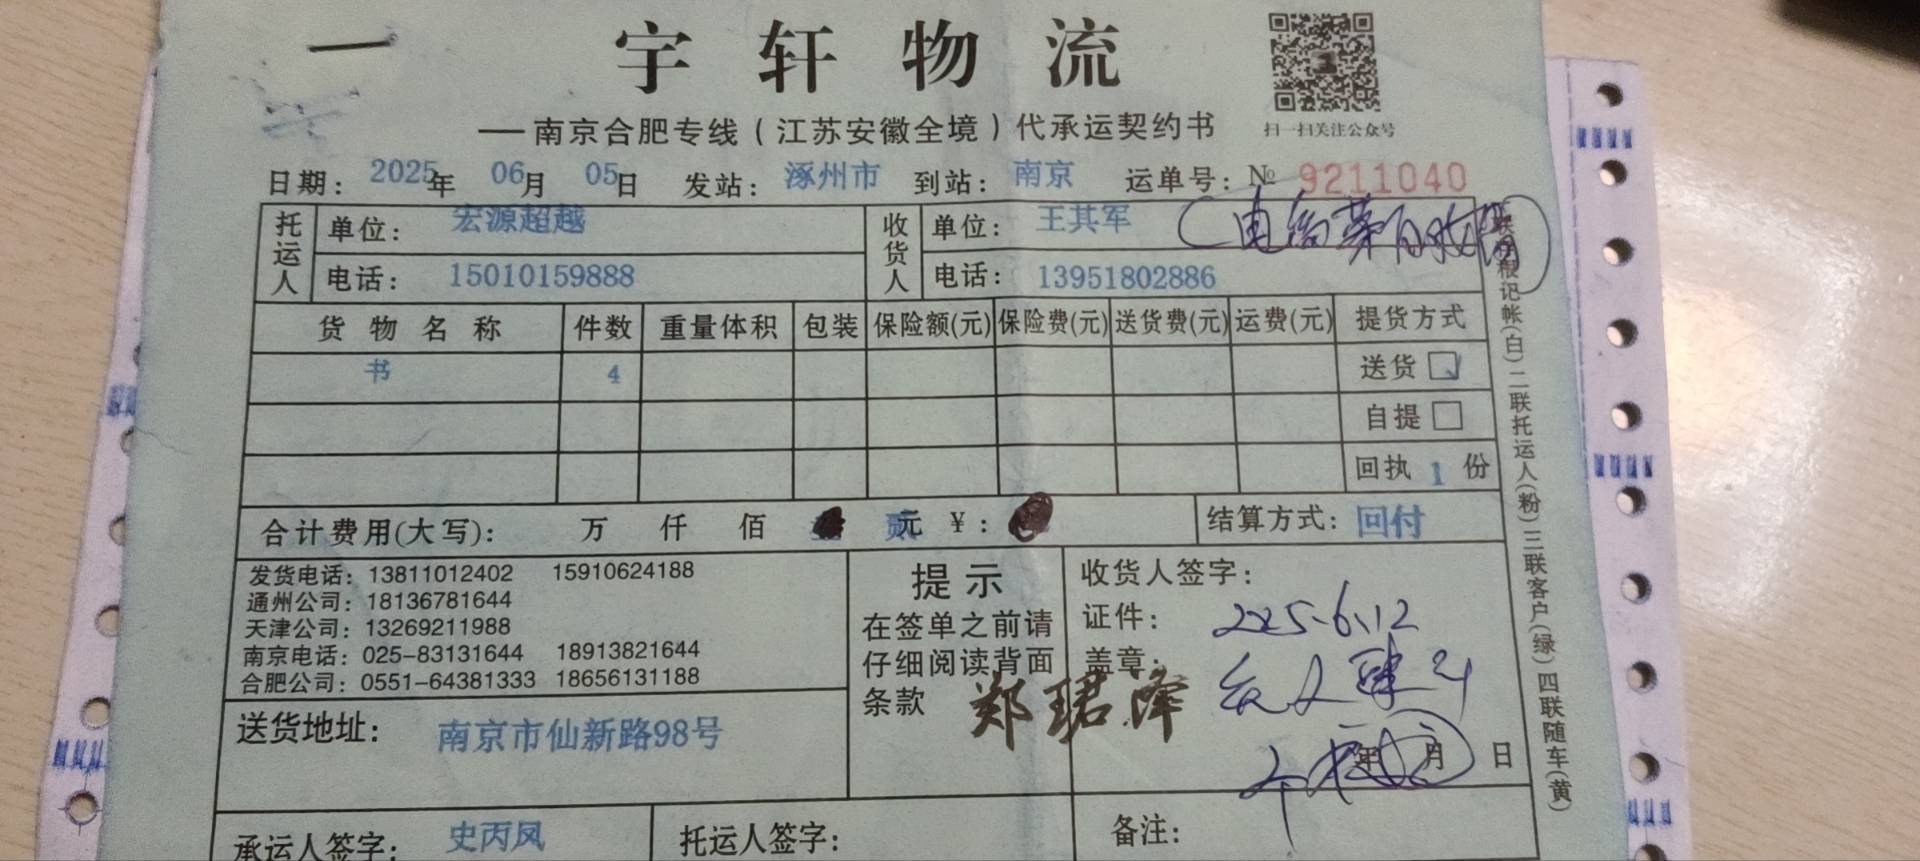 宇轩物流
扫一扫关注公众号
——南京合肥专线（江苏安徽全境）代承运契约书
日期：2025年 06月 05日 发站：涿州市 到站：南京 运单号：№ 9211040
托运人 单位：宏源超越 收货人 单位：王其军
电话：15010159888 电话：13951802886
货物名称 件数 重量体积 包装 保险额(元) 保险费(元) 送货费(元) 运费(元) 提货方式
书 4 送货☑
自提□
回执 1 份
合计费用(大写)： 万 仟 佰 元 ￥： 结算方式：回付
发货电话：13811012402 15910624188
通州公司：18136781644
天津公司：13269211988
南京电话：025-83131644 18913821644
合肥公司：0551-64381333 18656131188
提示
在签单之前请
仔细阅读背面
条款
收货人签字：
证件： 2025-6.12
盖章：
郑珺峰
年 月 日
送货地址：南京市仙新路98号
承运人签字：史丙凤 托运人签字： 备注：
根记帐(白)二联托运人(粉)三联客户(绿)四联随车(黄)